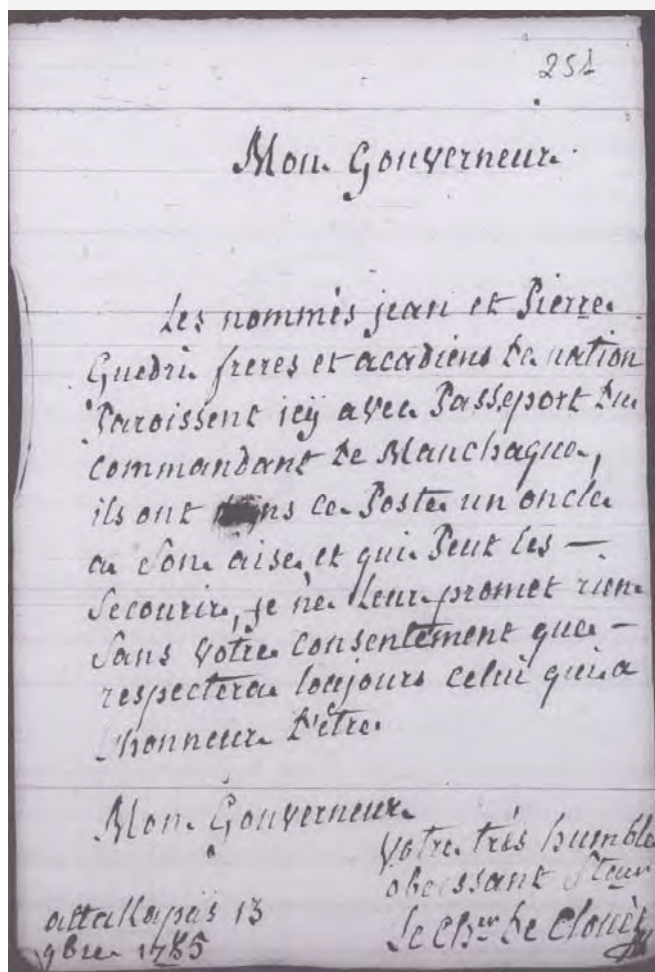 251
Mon Gouverneur
Les nommés jean et Pierre
Guedri freres et acadiens de nation
Paroissent icÿ avec Passeport du
commandant de Manchaque,
ils ont dans ce Poste un oncle
a Son aise, et qui Peut les —
Secourir, je ne leur promet rien
Sans votre consentement que —
respectera toujours celui qui a
L'honneur D'être
Mon Gouverneur
Votre trés humble
obeissant Steur
attakapas 13
9bre 1785
Le Cher De Cloüet